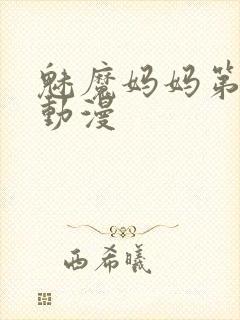 魅魔妈妈第
動漫
西希曦